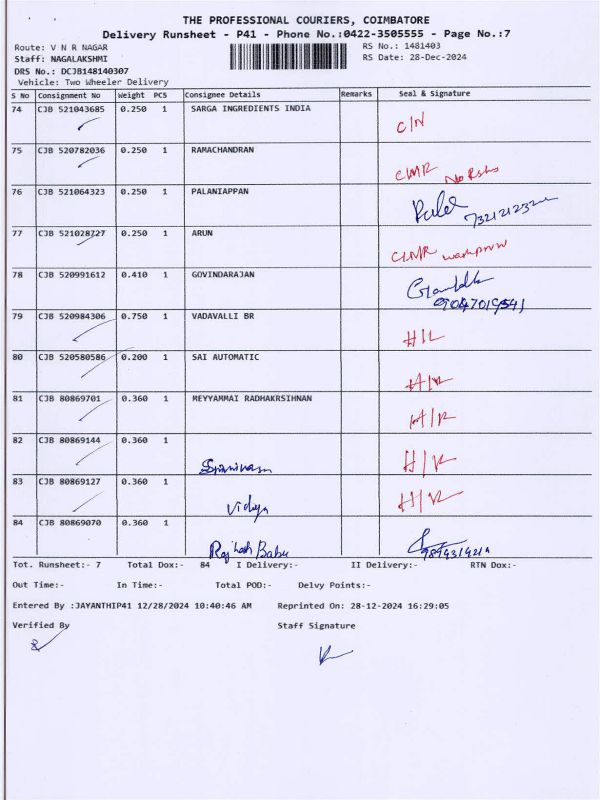 THE PROFESSIONAL COURIERS, COIMBATORE
Delivery Runsheet - P41 - Phone No.:0422-3505555 - Page No.:7
Route: V N R NAGAR RS No.: 1481403
Staff: NAGALAKSHMI RS Date: 28-Dec-2024
DRS No.: DCJB148140307
Vehicle: Two Wheeler Delivery
S No Consignment No Weight PCS Consignee Details Remarks Seal & Signature
74 CJB 521043685 0.250 1 SARGA INGREDIENTS INDIA C/N
75 CJB 520782036 0.250 1 RAMACHANDRAN
76 CJB 521064323 0.250 1 PALANIAPPAN
77 CJB 521028727 0.250 1 ARUN
78 CJB 520991612 0.410 1 GOVINDARAJAN
79 CJB 520984306 0.750 1 VADAVALLI BR
80 CJB 520580586 0.200 1 SAI AUTOMATIC
81 CJB 80869701 0.360 1 MEYYAMMAI RADHAKRSIHNAN
82 CJB 80869144 0.360 1
83 CJB 80869127 0.360 1 Vidya
84 CJB 80869070 0.360 1 Babu
Tot. Runsheet:- 7 Total Dox:- 84 I Delivery:- II Delivery:- RTN Dox:-
Out Time:- In Time:- Total POD:- Delvy Points:-
Entered By :JAYANTHIP41 12/28/2024 10:40:46 AM Reprinted On: 28-12-2024 16:29:05
Verified By Staff Signature